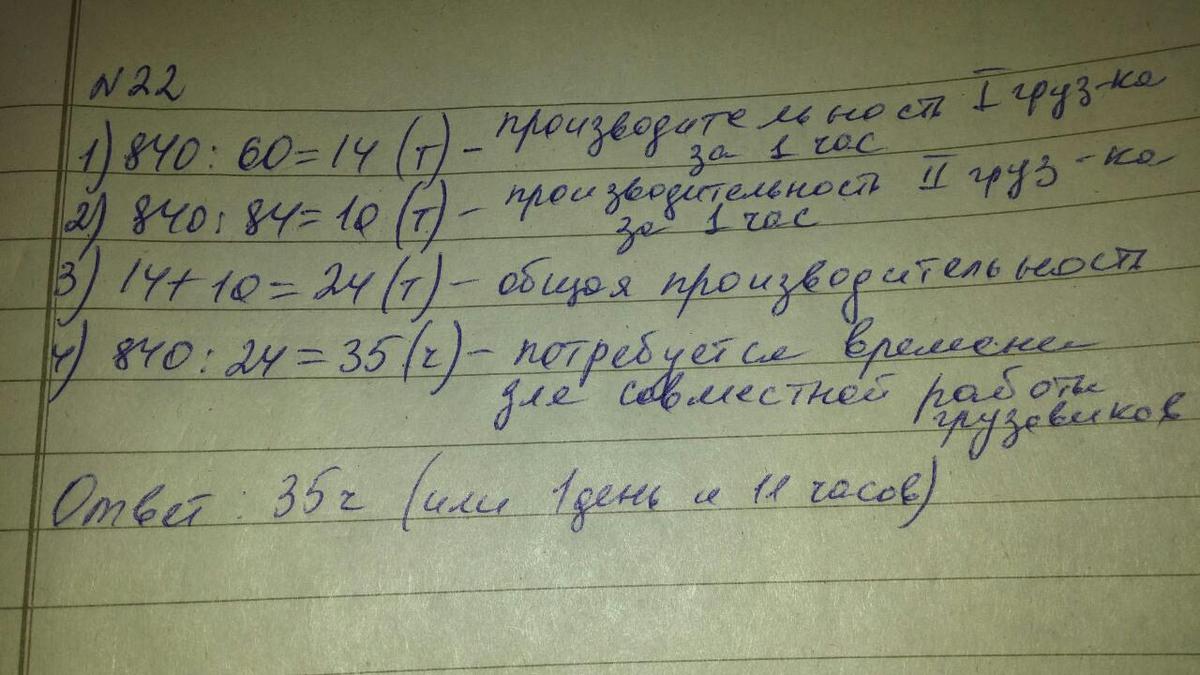 №22
1) 840 : 60 = 14 (т) – производительность I груз-ка
за 1 час
2) 840 : 84 = 10 (т) – производительность II груз-ка
за 1 час
3) 14 + 10 = 24 (т) – общая производительность
4) 840 : 24 = 35 (ч) – потребуется времени
для совместной работы
грузовиков
Ответ : 35ч (или 1 день и 11 часов)